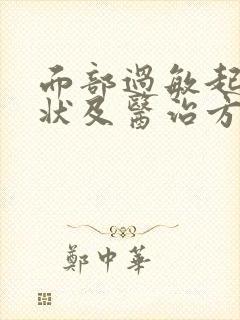 而部過敏起
狀及醫治方
鄭中華